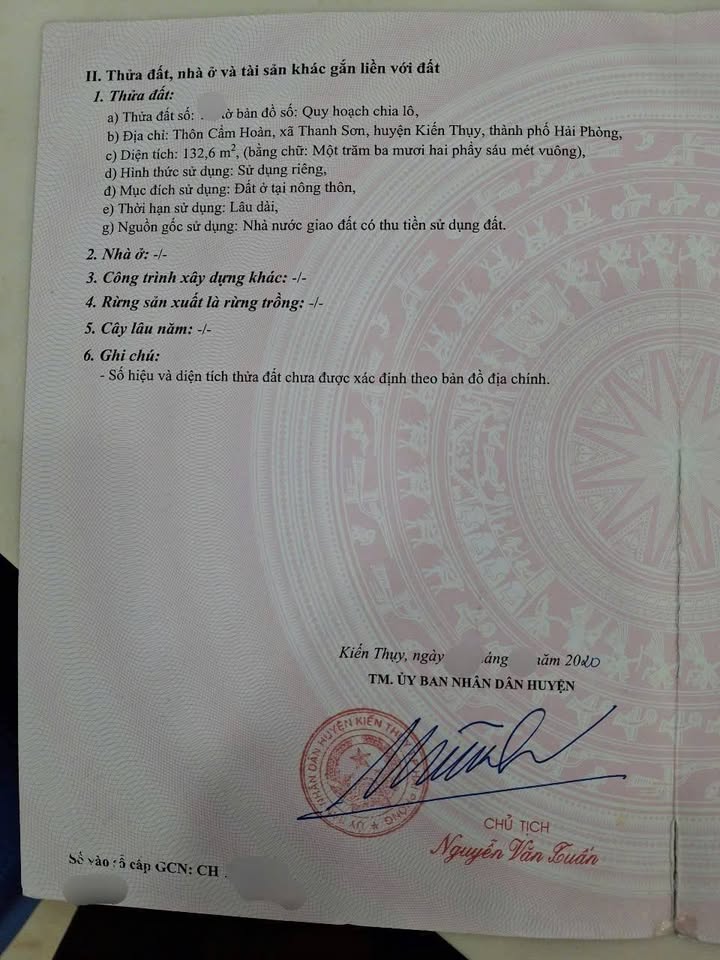 II. Thửa đất, nhà ở và tài sản khác gắn liền với đất
1. Thửa đất:
a) Thửa đất số: tờ bản đồ số: Quy hoạch chia lô,
b) Địa chỉ: Thôn Cẩm Hoàn, xã Thanh Sơn, huyện Kiến Thụy, thành phố Hải Phòng,
c) Diện tích: 132,6 m², (bằng chữ: Một trăm ba mươi hai phẩy sáu mét vuông),
d) Hình thức sử dụng: Sử dụng riêng,
đ) Mục đích sử dụng: Đất ở tại nông thôn,
e) Thời hạn sử dụng: Lâu dài,
g) Nguồn gốc sử dụng: Nhà nước giao đất có thu tiền sử dụng đất.
2. Nhà ở: -/-
3. Công trình xây dựng khác: -/-
4. Rừng sản xuất là rừng trồng: -/-
5. Cây lâu năm: -/-
6. Ghi chú:
- Số hiệu và diện tích thửa đất chưa được xác định theo bản đồ địa chính.
Kiến Thụy, ngày tháng năm 2020
TM. ỦY BAN NHÂN DÂN HUYỆN
CHỦ TỊCH
Nguyễn Văn Tuấn
Số vào sổ cấp GCN: CH